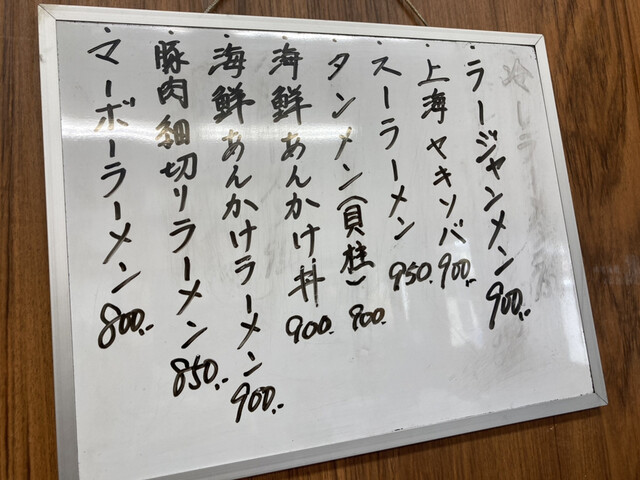 ・ラージャンメン 900.-
・上海ヤキソバ 900.
・スーラーメン 950.
・タンメン(貝柱) 900.
・海鮮あんかけ丼 900.
・海鮮あんかけラーメン 900.-
・豚肉細切りラーメン 850.-
・マーボーラーメン 800.-